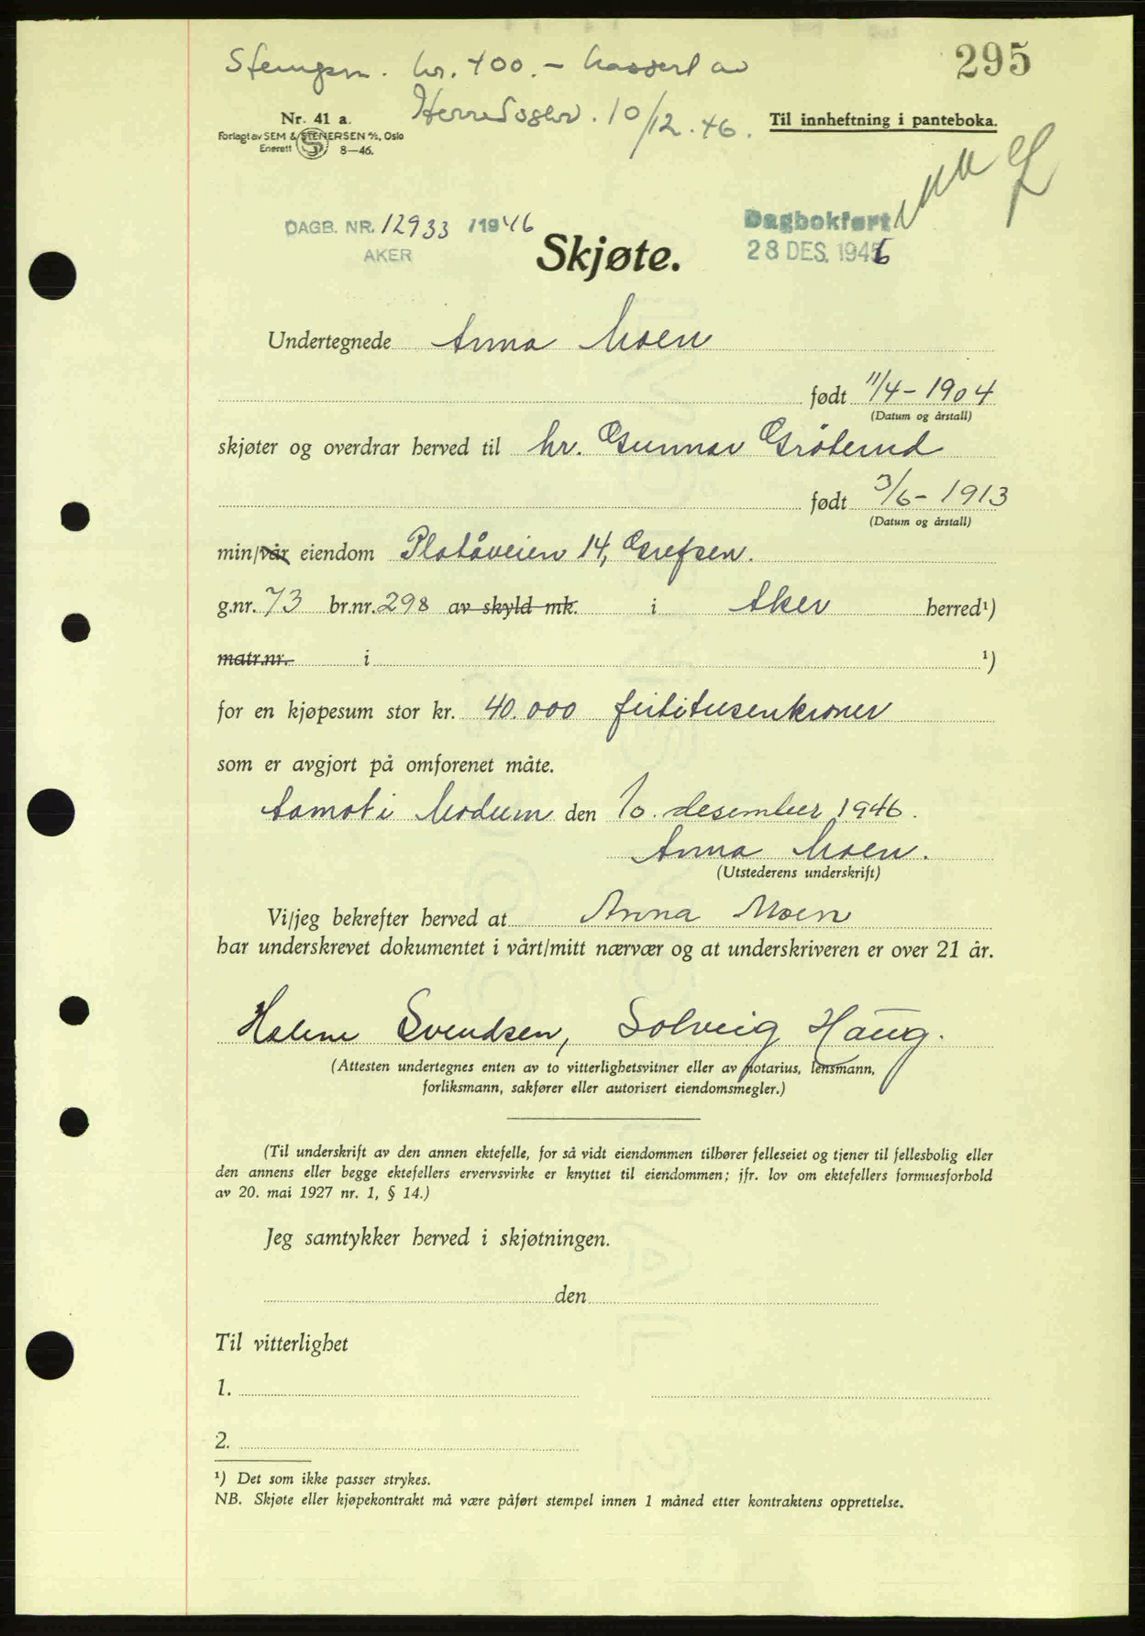 295
Stempm. kr. 400.- kassert av
Herredsskr. 10/12.46.
Nr. 41 a.
Forlagt av SEM & STENERSEN A/S, Oslo
Enerett S 8—46.
Til innheftning i panteboka.
DAGB. NR. 12933 /1946
AKER
Dagbokført
28 DES. 1946
Skjøte.
Undertegnede Anna Moen
født 11/4-1904
(Datum og årstall)
skjøter og overdrar herved til hr. Gunnar Gröterud
født 3/6-1913
(Datum og årstall)
min/vår eiendom Platåveien 14, Grefsen.
g.nr. 73 br.nr. 298 av skyld mk. i Aker herred¹)
matr.nr. i ¹)
for en kjøpesum stor kr. 40.000 førtitusenkroner
som er avgjort på omforenet måte.
Aamot i Modum den 10. desember 1946.
Anna Moen.
(Utstederens underskrift)
Vi/jeg bekrefter herved at Anna Moen
har underskrevet dokumentet i vårt/mitt nærvær og at underskriveren er over 21 år.
Halene Svendsen, Solveig Haug.
(Attesten undertegnes enten av to vitterlighetsvitner eller av notarius, lensmann,
forliksmann, sakfører eller autorisert eiendomsmegler.)
(Til underskrift av den annen ektefelle, for så vidt eiendommen tilhører felleseiet og tjener til fellesbolig eller
den annens eller begge ektefellers ervervsvirke er knyttet til eiendommen; jfr. lov om ektefellers formuesforhold
av 20. mai 1927 nr. 1, § 14.)
Jeg samtykker herved i skjøtningen.
den
Til vitterlighet
1.
2.
¹) Det som ikke passer strykes.
NB. Skjøte eller kjøpekontrakt må være påført stempel innen 1 måned etter kontraktens opprettelse.